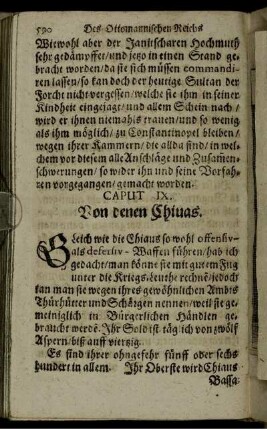 590 Des Ottomannischen Reichs
Wiewohl aber der Janitscharen Hochmuth
sehr gedämpffet/und jetzo in einen Stand ge-
bracht worden/da sie sich müssen commandi-
ren lassen/so kan doch der heutige Sultan der
Forcht nicht vergessen/welche sie ihm in seiner
Kindheit eingejagt/und allem Schein nach/
wird er ihnen niemahls trauen/und so wenig
als ihm möglich/zu Constantinopel bleiben/
wegen ihrer Kammern/die allda sind/in wel-
chem vor diesem alle Anschläge und Zusamen-
schwerungen/so wider ihn und seine Vorfah-
ren vorgegangen/gemacht worden.
CAPUT IX.
Von denen Chiaus.
Gleich wie die Chiaus so wohl offensiv-
als defensiv-Waffen führen/hab ich
gedacht/man könne sie mit gutem Fug
unter die Kriegs-Leuthe rechnē/jedoch
kan man sie wegen ihres gewöhnlichen Ambts
Thürhüter und Schärgen nennen/weil sie ge-
meiniglich in Bürgerlichen Händlen ge-
braucht werdē. Ihr Sold ist täglich von zwölf
Aspern/biß auff viertzig.
Es sind ihrer ohngefehr fünff oder sechs
hundert in allem. Ihr Oberste wird Chiaus
Bassa